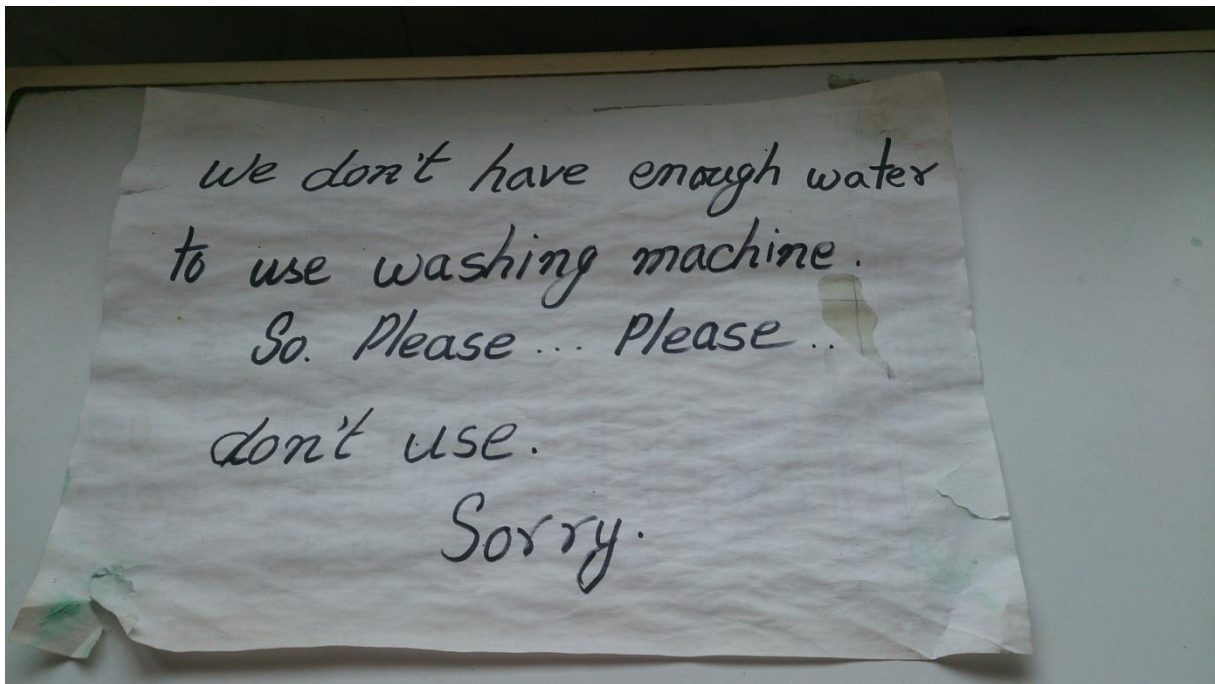 We don't have enough water
to use washing machine.
So. Please... Please..
don't use.
Sorry.